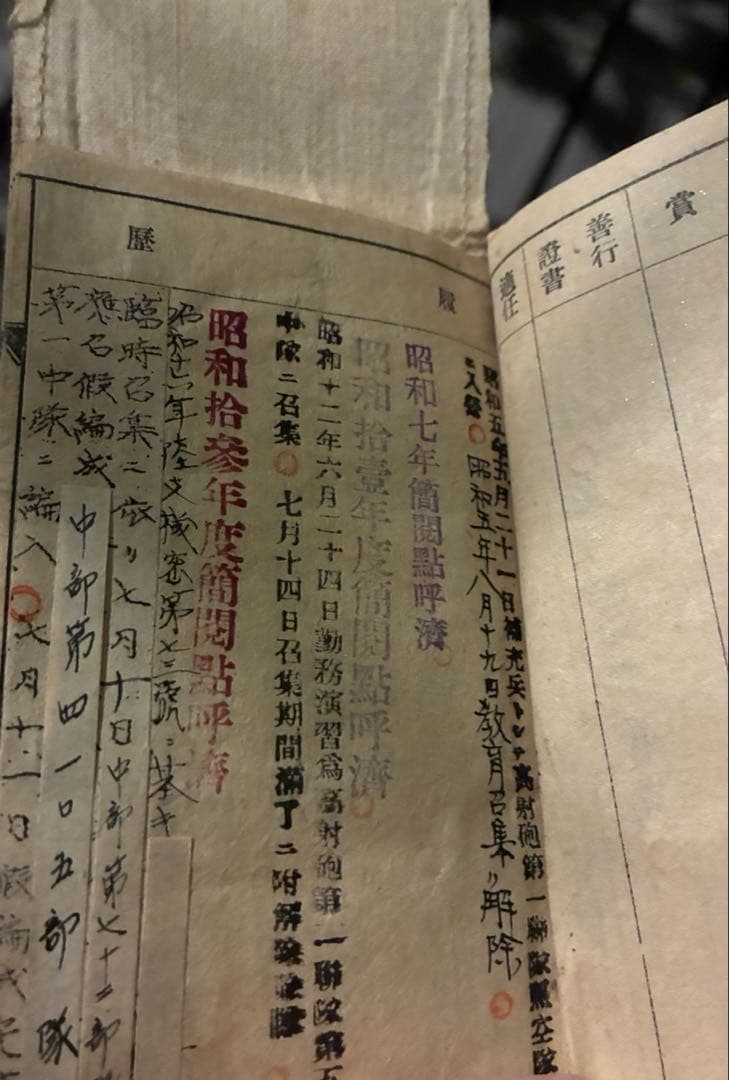 賞
善行
證書
適任
履
歷
昭和五年五月二十一日補充兵トシテ高射砲第一聯隊照空隊
ニ入營 昭和五年八月十九日教育召集解除
昭和七年簡閱點呼濟
昭和拾壹年度簡閱點呼濟
昭和十二年六月二十四日勤務演習爲高射砲第一聯隊第五
中隊ニ召集 七月十四日召集期間滿了ニ附解
昭和拾參年度簡閱點呼濟
昭和十六年陸支機密第七三號ニ基キ
臨時召集ニ依リ七月十日中部第七十二部
應召假編成 中部第四一〇五部隊
第一中隊ニ編入 七月十一日假編成